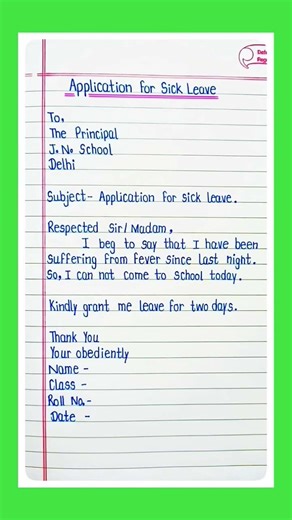 Application for Sick Leave
To,
The Principal
J. N. School
Delhi
Subject- Application for sick leave.
Respected Sir/Madam,
I beg to say that I have been
suffering from fever since last night.
So, I can not come to school today.
Kindly grant me leave for two days.
Thank You
Your obediently
Name -
Class -
Roll No.-
Date -